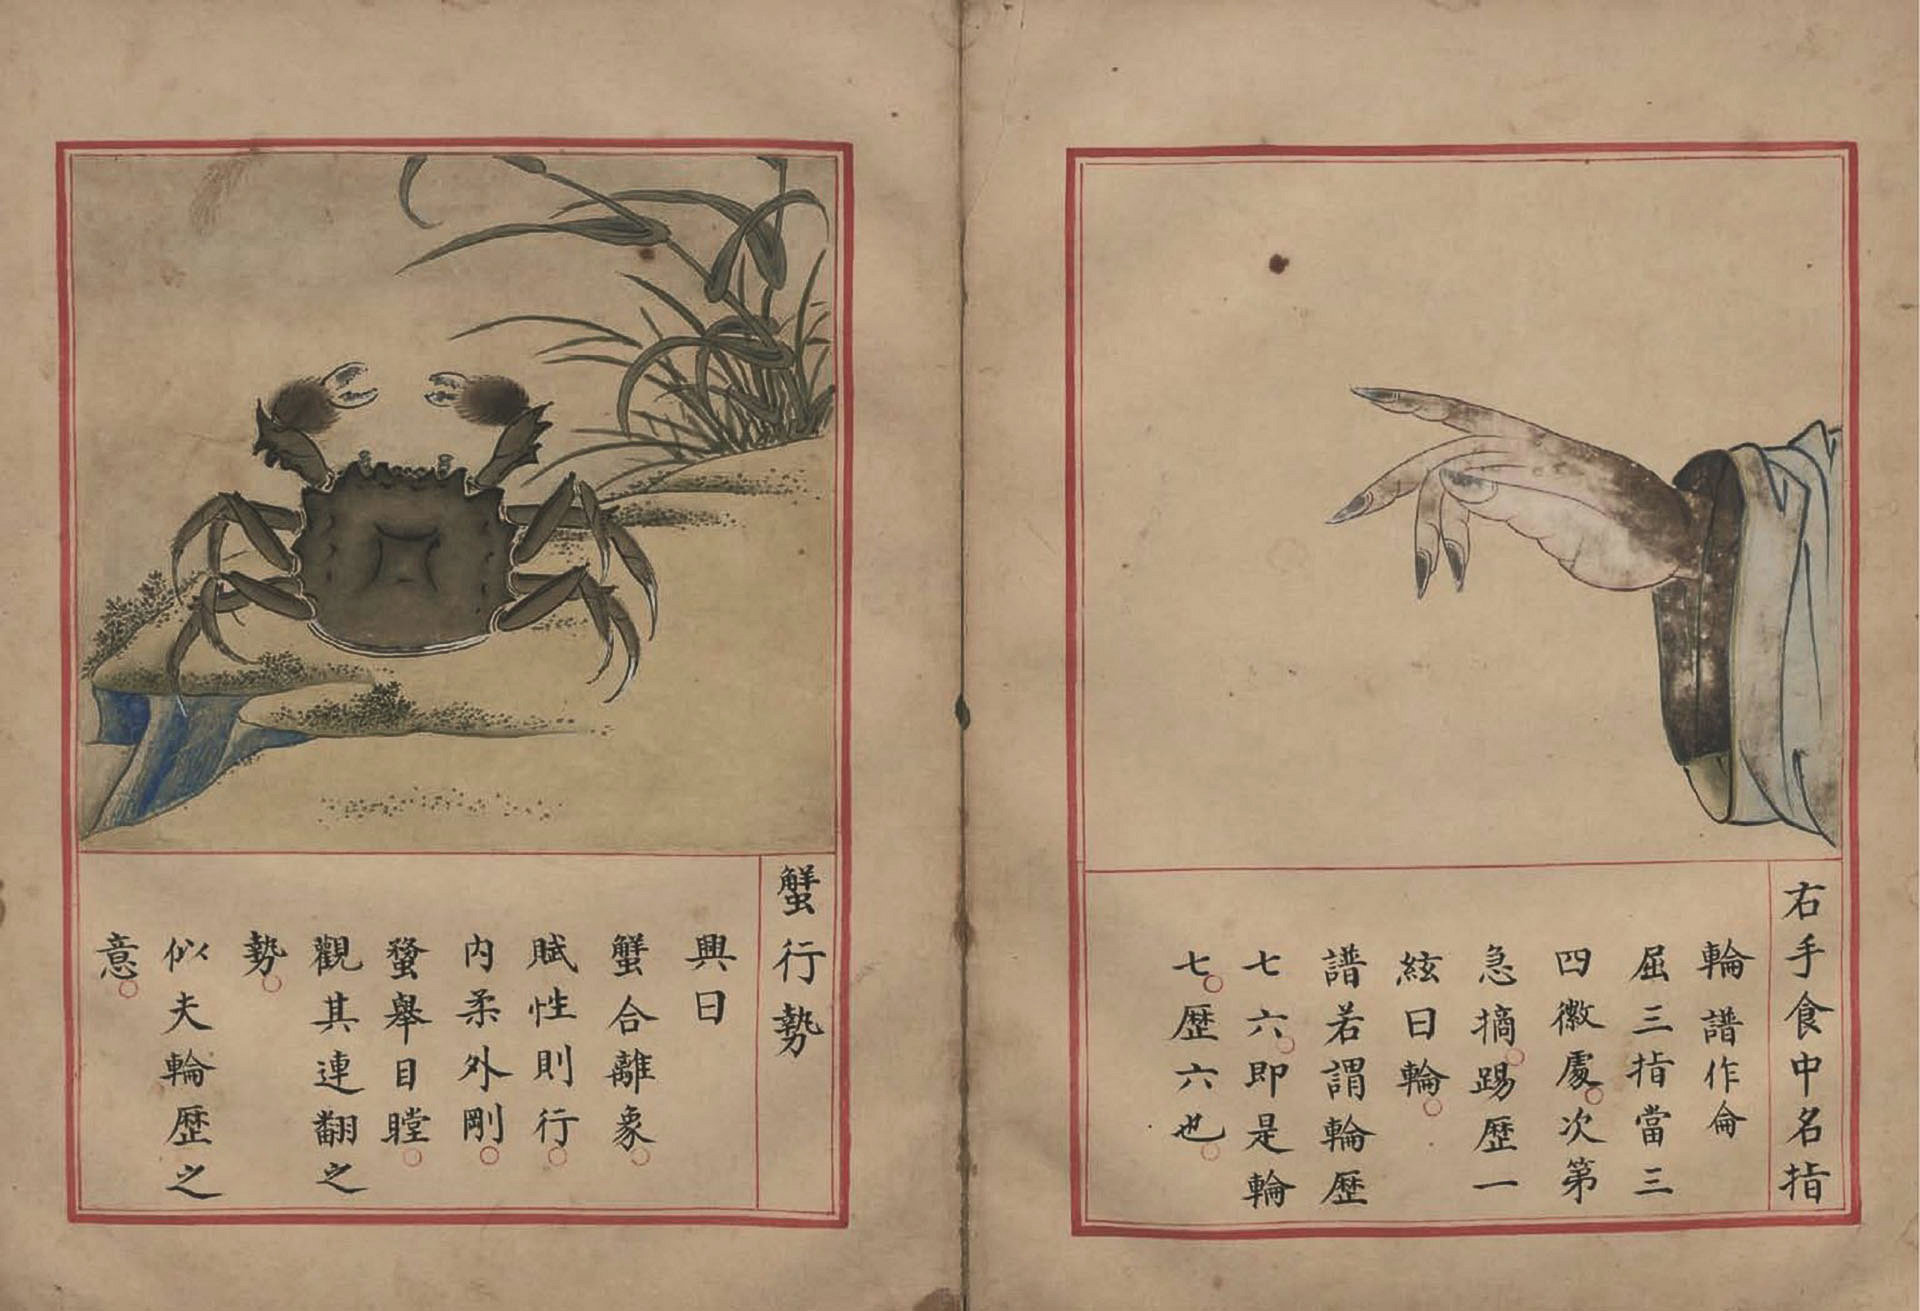 右手食中名指
輪譜作侖
屈三指當三
四徽處次第
急摘踢歷一
絃曰輪
譜若謂輪歷
七六即是輪
七歷六也
蟹行勢
興曰
蟹合離象
賦性則行
內柔外剛
螯舉目瞠
觀其連翻之
勢
似夫輪歷之
意